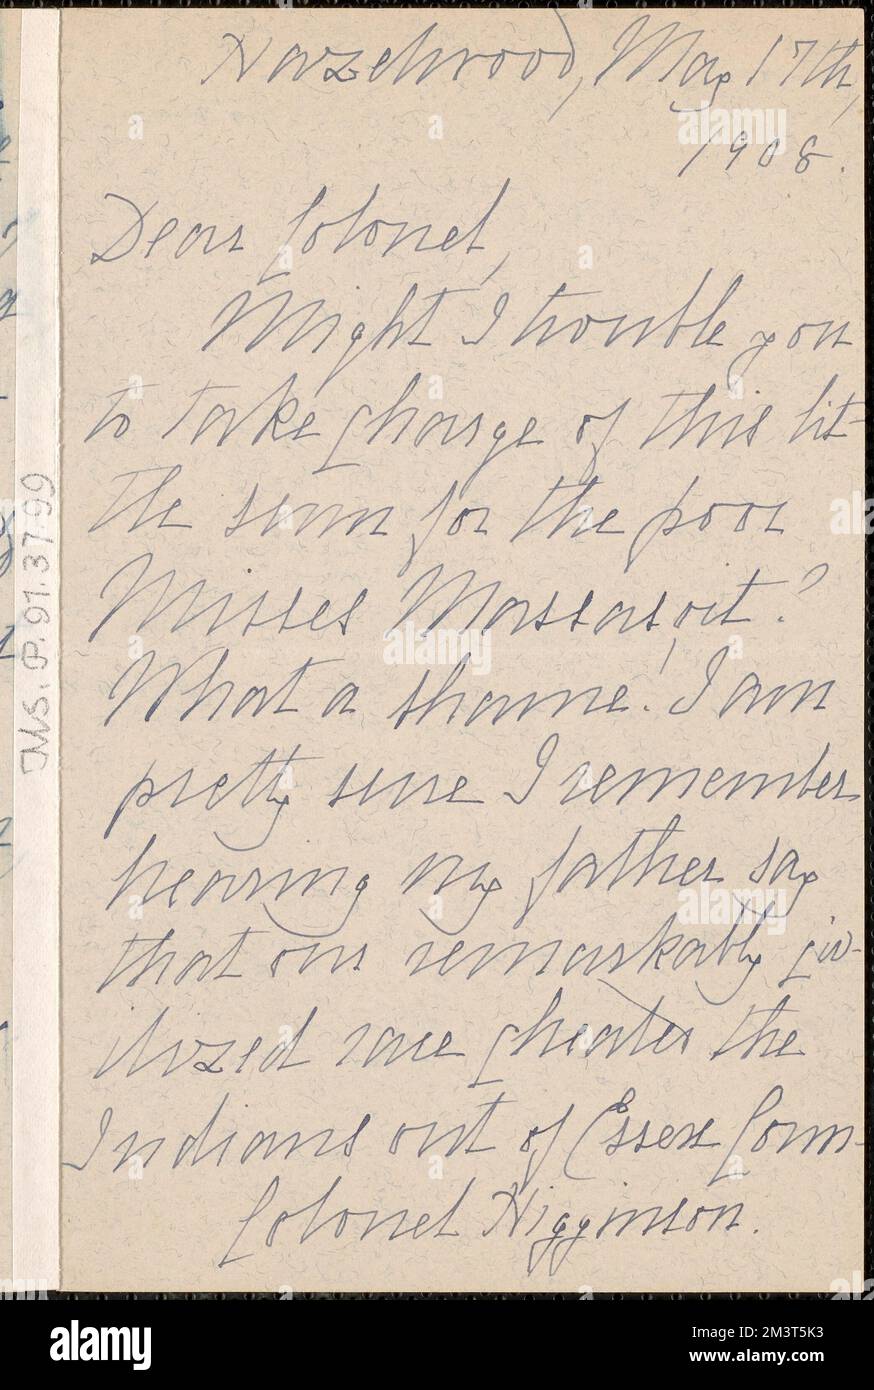 Hazelwood, May 17th,
1908.
Dear Colonel,
Might I trouble you
to take charge of this lit-
tle sum for the poor
Misses Massasoit?
What a shame! I am
pretty sure I remember
hearing my father say
that our remarkably civ-
ilized race cheated the
Indians out of Essex Coun-
Colonel Higginson.
MS. P. 91.37.99
alamy
Image ID: 2M3T5K3
www.alamy.com